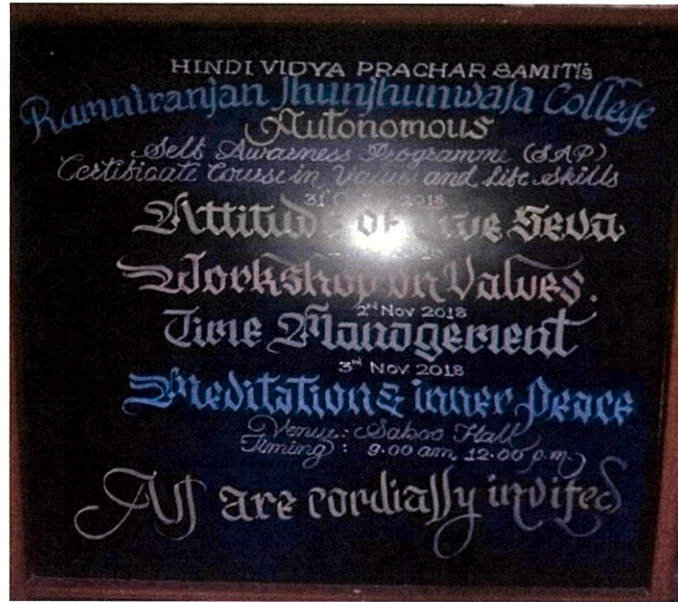 HINDI VIDYA PRACHAR SAMITI's
Ramniranjan Jhunjhunwala College
Autonomous
Self Awarness Programme (SAP)
Certificate Course in Values and life skills
31st 2018
Attitude of Seva
Workshop on Values.
2nd Nov 2018
Time Management
3rd Nov 2018
Meditation & inner Peace
Venue: Saboo Hall
Timing : 9.00 am, 12.00 p.m.
All are cordially invited